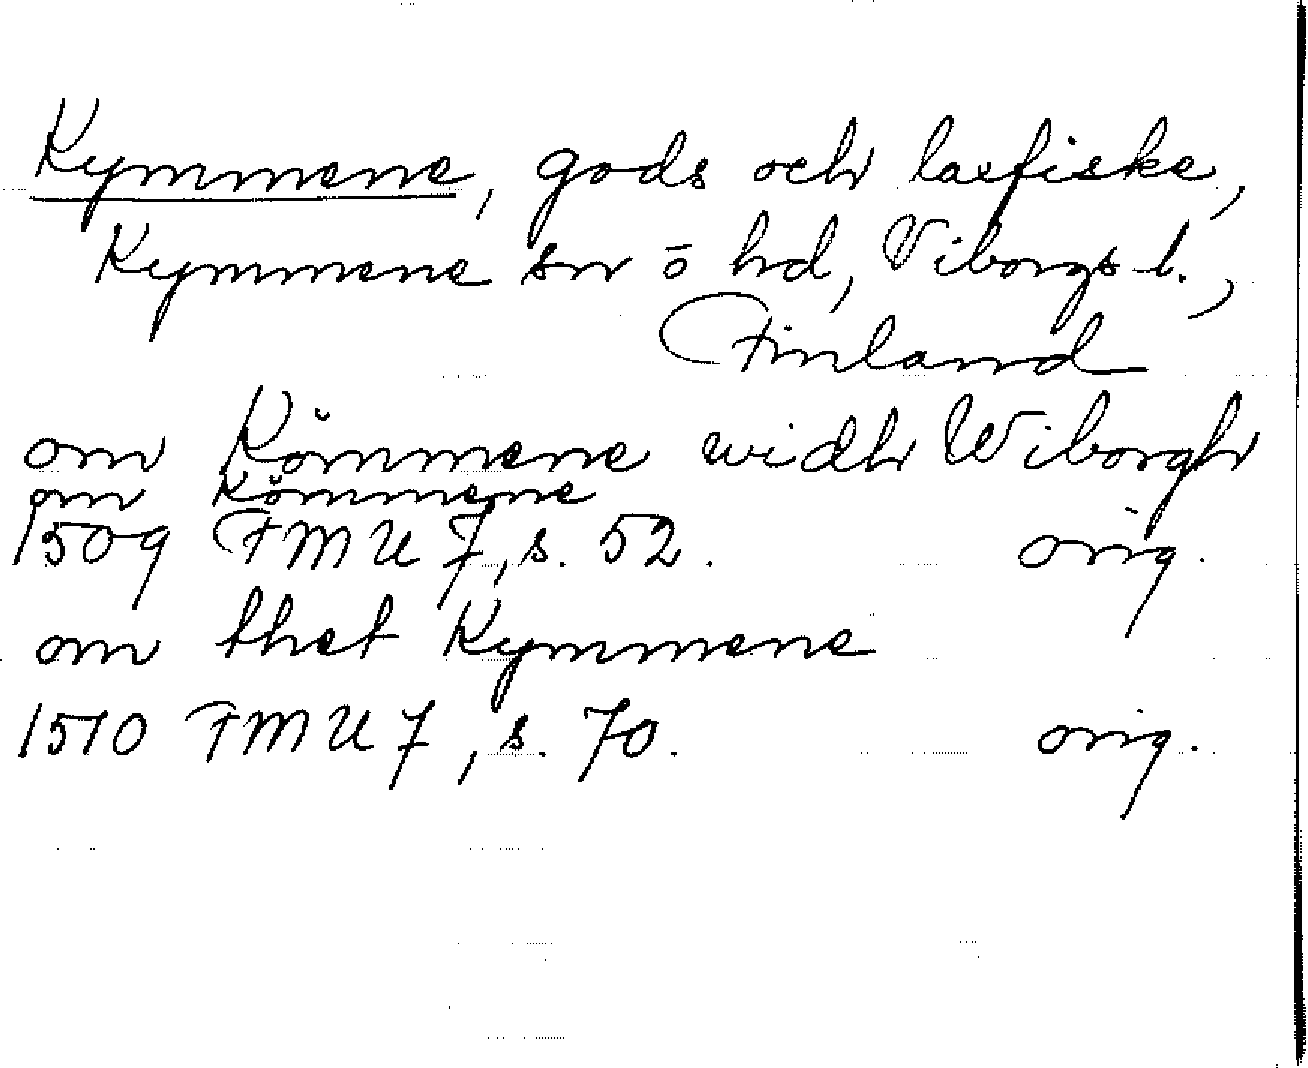 Kymmene, gods och laxfiske,
Kymmene sn o hd, Viborgs l.,
Finland
om Kömmene widh Wiborgh
om Kömmene
1509 FMU 7, s. 52. orig.
om thet Kymmene
1510 FMU 7, s. 70. orig.